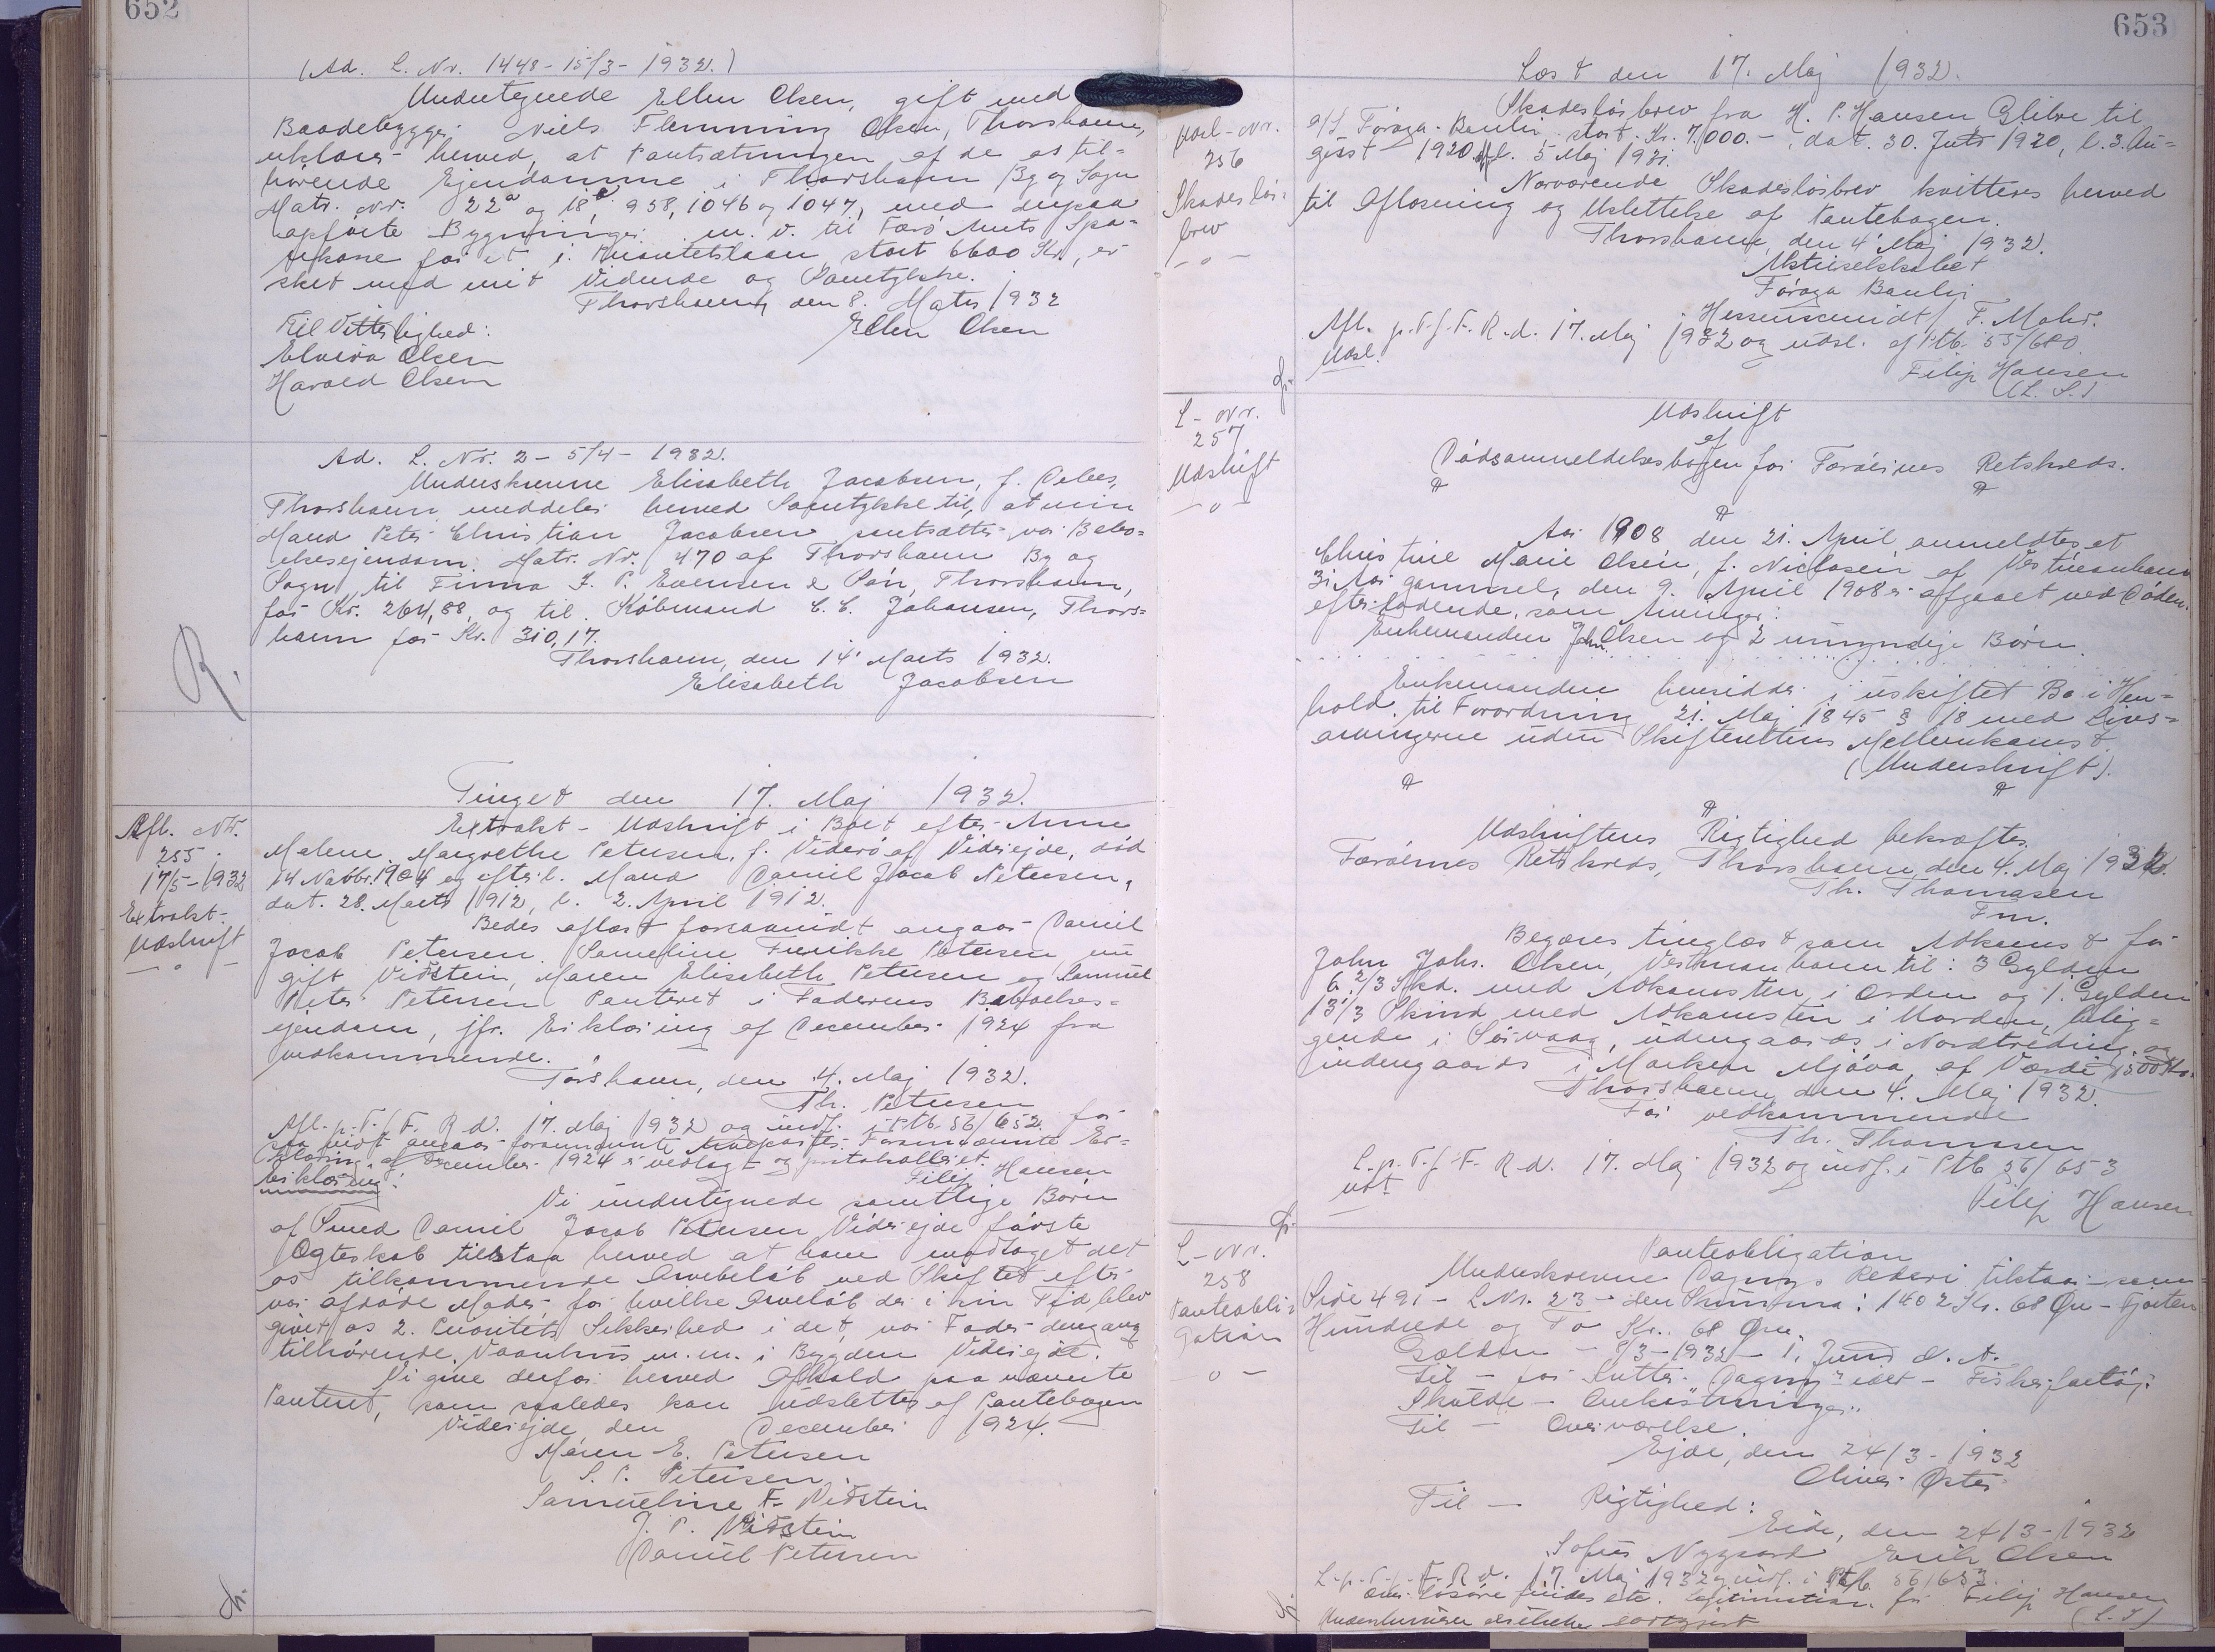 652
(Ad. L. Nr. 1448 - 15/3 - 1932.)
Undertegnede Ellen Olsen, gift med
Baadebygger Niels Flemming Olsen, Thorshavn,
erklærer herved, at Pantsætningen af de os til-
hørende Ejendomme i Thorshavn By og Sogn
Matr. Nr. 22a og 18e, 958, 1046 og 1047, med derpaa
opførte Bygninger m. v. til Færø Amts Spa-
rekasse for et i. Prioritetslaan stort 6600 Kr., er
sket med mit Vidende og Samtykke.
Thorshavn, den 8. Marts 1932
Til Vitterlighed: Ellen Olsen
Elvira Olsen
Harald Olsen
Ad. L. Nr. 2 - 5/4 - 1932.
Underskrevne Elisabeth Jacobsen, f.
Thorshavn meddeler herved Samtykke til, at min
Mand Peter Christian Jacobsen pantsætter vor Bebo-
elsesejendom Matr. Nr. 470 af Thorshavn By og
Sogn, til Firma J. P. Evensen & Søn, Thorshavn,
for Kr. 264,88, og til Købmand C. C. Johansen, Thors-
havn for Kr. 310,17.
Thorshavn, den 14' Marts 1932.
Elisabeth Jacobsen
R.
Tinget den 17. Maj 1932.
Afl. Nr.
255.
17/5 - 1932
Extrakt-
Udskrift
- " -
Extrakt - Udskrift i Boet efter Anne
Malene Margrethe Petersen, f. Viderø af Viderejde, død
14 Novbr. 1904 og efterl. Mand Daniel Jacob Petersen,
dat. 28. Marts 1912, l. 2. April 1912.
Bedes aflæst forsaavidt angaar Daniel
Jacob Petersen, Sameline Fredrikke Petersen nu
gift Vidstein, Maren Elisabeth Petersen og Samuel
Peter Petersen Panteret i Faderens Beboelses-
ejendom, jfr. Erklæring af December 1924 fra
vedkommende.
Torshavn, den 4. Maj 1932.
Th. Petersen
Afl. p. T. f. F. R. d. 17. Maj 1932 og indf. i Ptb. 56/652 for
saa vidt angaar forannævnte Forannævnte Er-
klæring af December 1924 er vedlagt og protokolleret.
Filip Hansen
Erklæring:
Vi undertegnede samtlige Børn
af Smed Daniel Jacob Petersen Viderejde første
Ægteskab tilstaa herved at have modtaget det
os tilkommende Arvebeløb ved Skiftet efter
vor afdøde Moder, for hvilke Arvebeløb der i sin Tid blev
givet os 2. Prioritets Sikkerhed i det, vor Fader dengang
tilhørende Vaanhus m. m. i Bygden Viderejde.
Vi give derfor herved Afkald paa nævnte
Panteret, som saaledes kan udslettes af Pantebogen
Viderejde, den December 1924.
Maren E. Petersen
S. P. Petersen
Samueline F. Vidstein
J. P. Vidstein
Daniel Petersen
653
Læst den 17. Maj 1932.
Nr.
256
Skadesløs-
brev
- " -
Skadesløsbrev fra H. P. Hansen Glibre til
A/S Føroya Banki stort Kr. 7,000.-, dat. 30. Juli 1920, l. 3. Au-
gust 1920, afl. 5 Maj 1931.
Nærværende Skadesløsbrev kvitteres herved
til Aflæsning og Udslettelse af Pantebogen.
Thorshavn, den 4' Maj 1932.
Aktieselskabet
Føroya Banki
F. Mohr.
Afl. p. T. f. F. R. d. 17. Maj 1932 og udsl. af Ptb. 55/680.
Udsl.
Filip Hansen
(L. S.)
L-Nr.
257
Udskrift
- " -
Udskrift
af
Dødsanmeldelsesbogen for Færøernes Retskreds.
Aar 1908 den 21. April anmeldtes at
Christine Marie Olsen, f. Niclasen af Vestmanhavn
31 Aar gammel, den 9. April 1908 er afgaaet ved Døden
efterladende som Arvinger:
Enkemanden Joh. Olsen og 2 umyndige Børn.
Enkemanden hensidder i uskiftet Bo i Hen-
hold til Forordning 21. Maj 1845 § 18 med Livs-
arvingerne uden Skifterettens Mellemkomst.
(Underskrift).
Udskriftens Rigtighed bekræftes.
Færøernes Retskreds, Thorshavn, den 4. Maj 1932.
Th. Thomasen
Fm.
Begæres tinglæst som Adkomst for
John Johs. Olsen, Vestmanhavn til: 3 Gylden
6 2/3 Skd. med Adkomsten i Orden og 1 Gylden
13 1/3 Skind med Adkomsten i Uorden, belig-
gende i Sørvaag, udengaards i Nordtreding, og
indengaards i Marken Mjáva, af Værdi 1500 Kr.
Thorshavn, den 4. Maj 1932.
For vedkommende
Th. Thomsen
L. p. T. f. F. R. d. 17. Maj 1932 og indf. i Ptb 56/653
Udt
Filip Hansen
L-Nr.
258
Panteobli-
gation
- " -
Panteobligation
Underskrevne Dagnys Rederi tilstaar - som
Side 491 - L Nr. 23 - den Summa: 1402 Kr. 68 Øre - Fjorten
Hundrede og To Kr. 68 Øre.
Gælden - 8/3 - 1932 - 1. Juni d. A.
Til - for Kutter "Dagny" - Fiskerfartøj.
Skulde - Omkostninger.
Til - Overværelse.
Ejde, den 24/3 - 1932
Oliver Øster
Til - Rigtighed:
Eide, den 24/3 - 1932
Sofus Nygaard Erik Olsen
L. p. T. f. F. R. d. 17. Maj 1932 og indf. i Ptb. 56/653.
Om Løsøre findes etc. Legitimation for Filip Hansen
(L. S.)